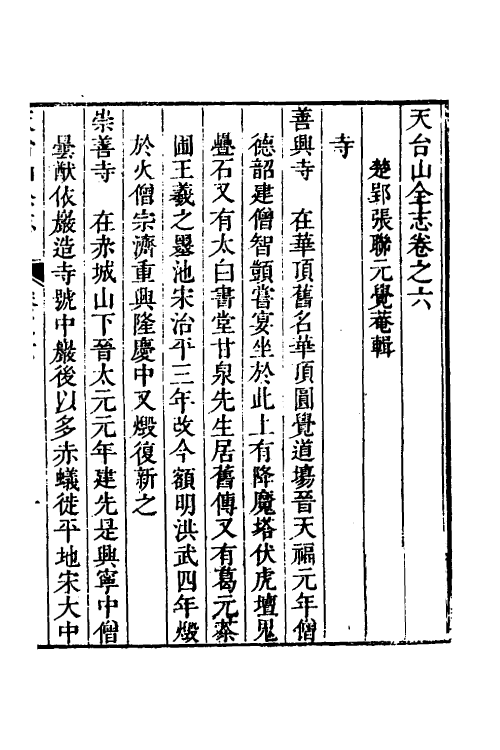 天台山全志卷之六
楚郢張聯元覺菴輯
寺
善興寺　在華頂舊名華頂圓覺道塲晉天福元年僧
德韶建僧智顗嘗宴坐於此上有降魔塔伏虎壇見
疊石又有太白書堂甘泉先生居舊傳又有葛元茶
圃王羲之墨池宋治平三年改今額明洪武四年燬
於火僧宗濟重興隆慶中又燬復新之
崇善寺　在赤城山下晉太元元年建先是興寧中僧
曇猷依巖造寺號中巖後以多赤蟻徙平地宋大中